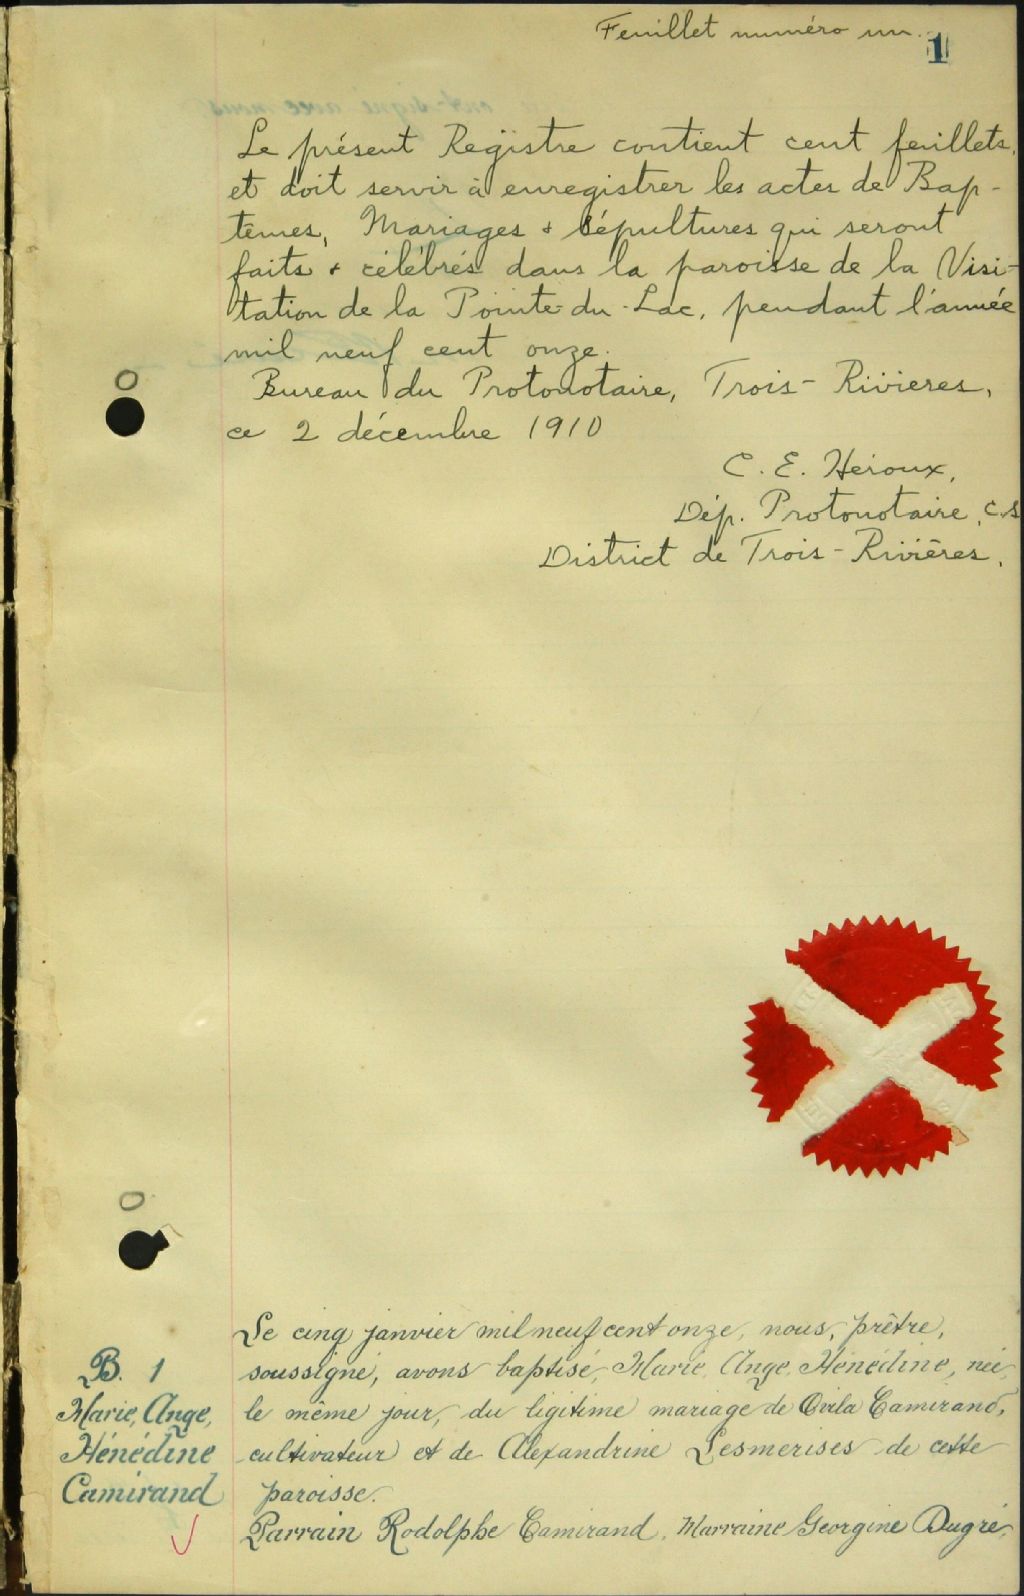 Feuillet numéro un.
1
Le présent Registre contient cent feuillets,
et doit servir à enregistrer les actes de Bap-
têmes, Mariages & Sépultures qui seront
faits & célébrés dans la paroisse de la Visi-
tation de la Pointe-du-Lac, pendant l'année
mil neuf cent onze.
Bureau du Protonotaire, Trois-Rivieres,
ce 2 décembre 1910
C. E. Héroux,
Dép. Protonotaire, C.S
District de Trois-Rivières.
Le cinq janvier mil neuf cent onze, nous, prêtre,
soussigné, avons baptisé, Marie, Ange, Hénédine, née,
le même jour, du ligitime mariage de Ovila Camirand,
cultivateur et de Alexandrine Lesmerises de cette
paroisse.
Parrain Rodolphe Camirand, Marraine Georgine Dugré,
B. 1
Marie, Ange,
Hénédine
Camirand